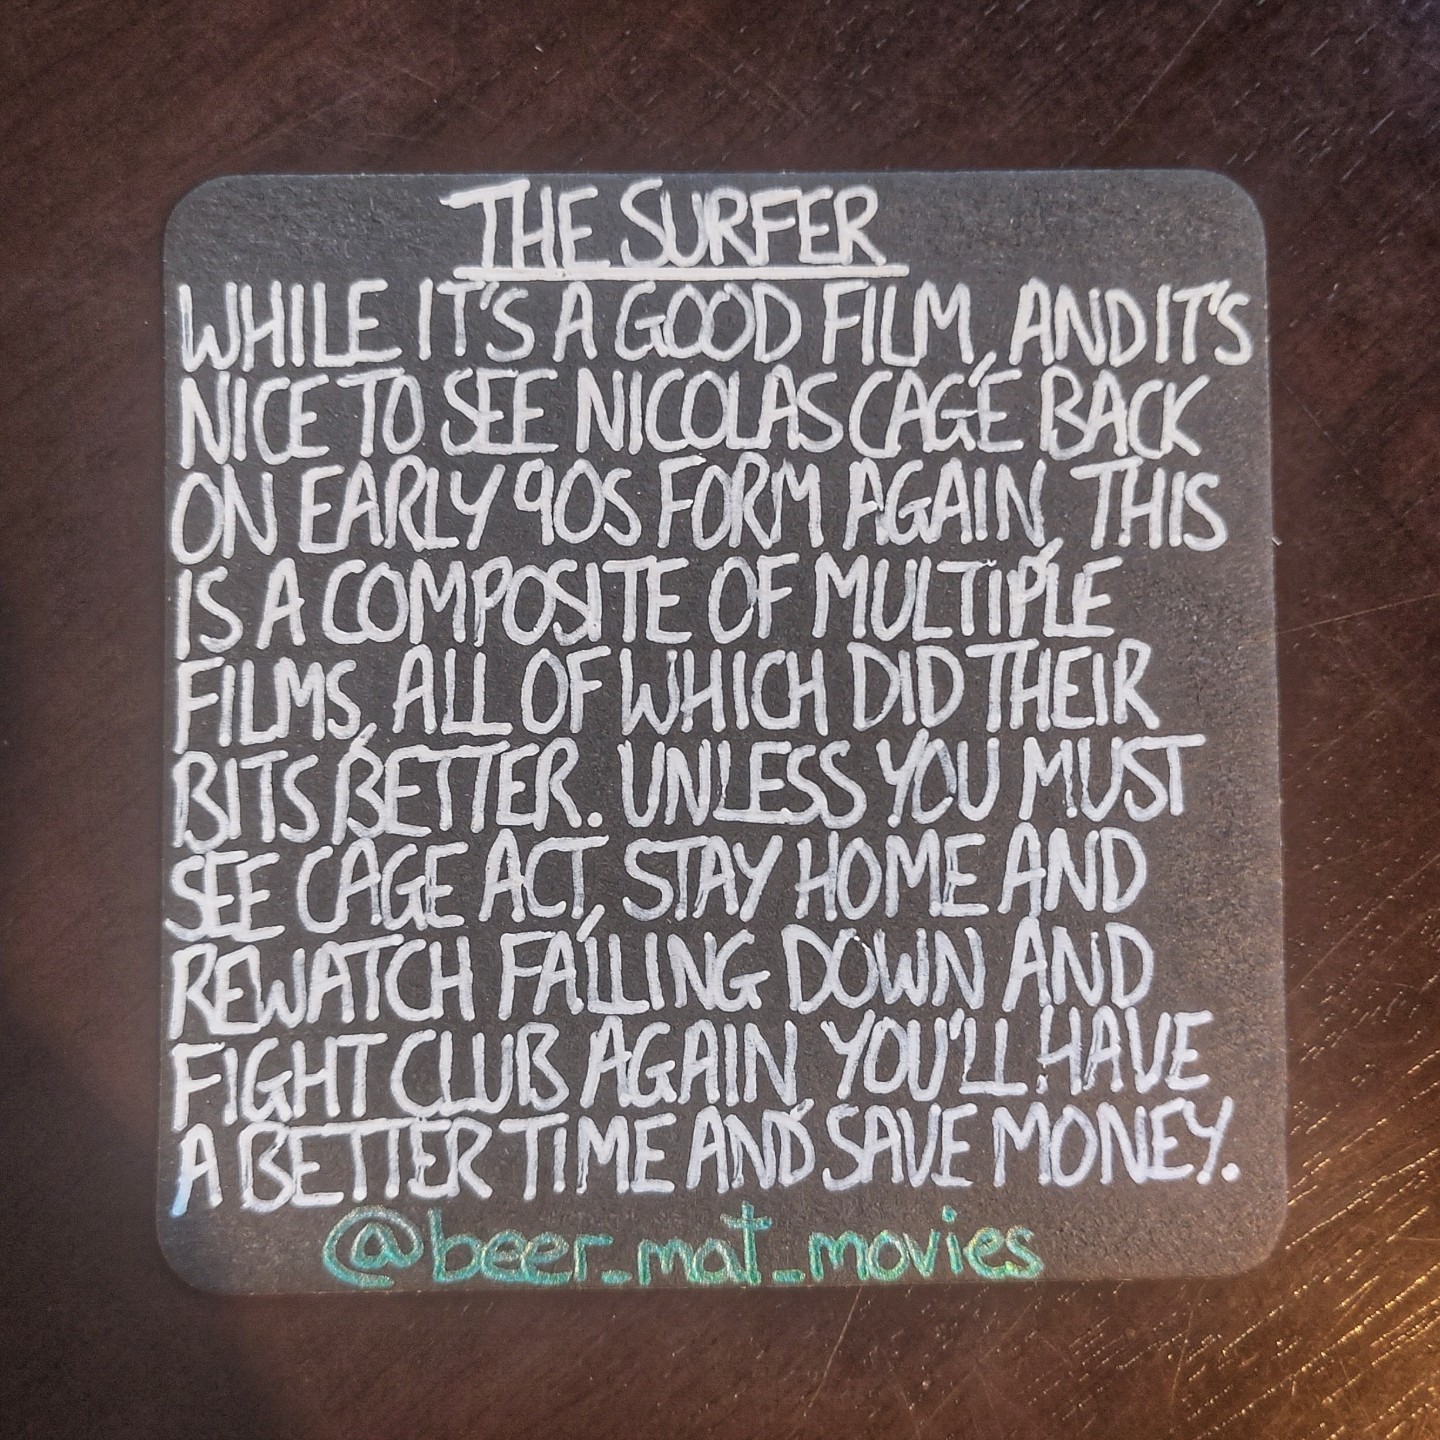 THE SURFER
WHILE IT'S A GOOD FILM, AND IT'S
NICE TO SEE NICOLAS CAGE BACK
ON EARLY 90S FORM AGAIN, THIS
IS A COMPOSITE OF MULTIPLE
FILMS, ALL OF WHICH DID THEIR
BITS BETTER. UNLESS YOU MUST
SEE CAGE ACT, STAY HOME AND
REWATCH FALLING DOWN AND
FIGHT CLUB AGAIN, YOU'LL HAVE
A BETTER TIME AND SAVE MONEY.
@beer_mat_movies